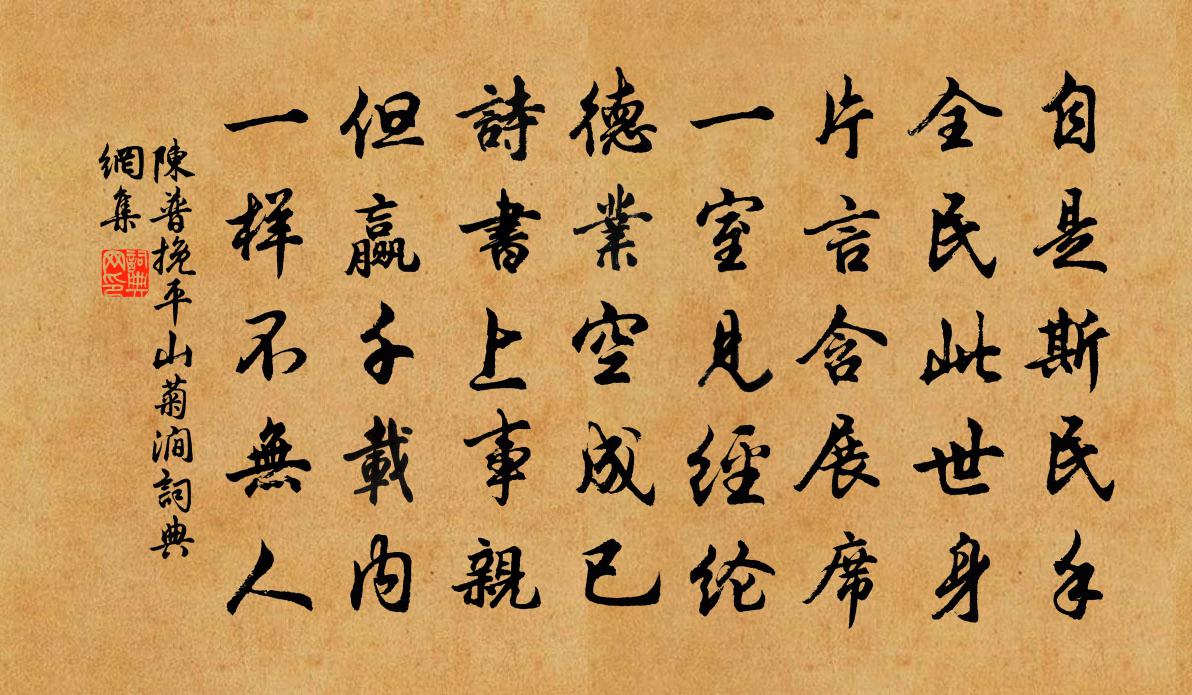 自是斯民秀
全民此世身
片言含展席
一室見經纶
德業空成已
詩書上事親
但贏千載内
一样不無人
陳普挽平山菊澗詞典
網集
詞典
网印